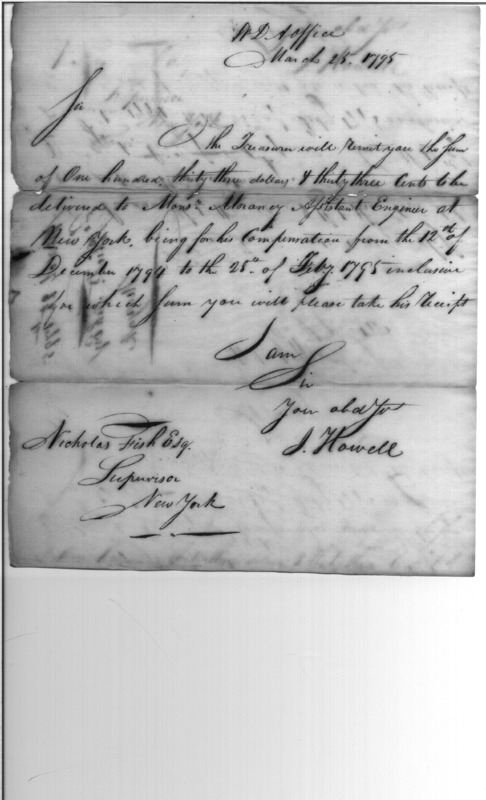 W D A office
March 25. 1795
Sir
The Treasurer will remit you the Sum
of One hundred, thirty three dollars & thirty three Cents to be
delivered to Monsr. Assistant Engineer at
New York, being for his Compensation from the 12th of
December 1794 to the 25th of Feby. 1795 inclusive
for which Sum you will please take his receipt
I am
Sir
Your obd Sr
J. Howell
Nicholas Fish Esq.
Supervisor
New York